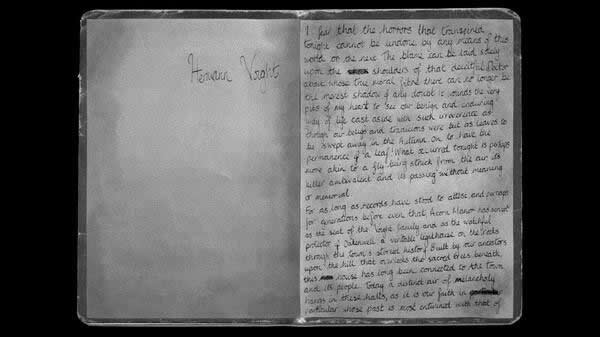 Hermann Voghts
I fear that the horrors that transpired
tonight cannot be undone by any means of this
world or the next. The blame can be laid solely
upon the shoulders of that deceitful Doctor
about whose true moral fibre there can no longer be
the merest shadow of any doubt. It wounds the very
pits of my heart to see our benign and enduring
way of life cast aside with such irreverence as
though our beliefs and traditions were but as leaves to
be swept away in the Autumn or to have the
permanence of a leaf! What occurred tonight is perhaps
more akin to a fly being struck from the air its
killer ambivalent and its passing without meaning
or memorial.
For as long as records have stood to attest, and perhaps
for generations before even that Acorn Manor has served
as the seat of the family and as the watchful
protector of a veritable lighthouse on the rocks
through the town's storied history. Built by our ancestors
upon the hill that overlooks the sacred trees beneath
this house has long been connected to the town
and its people. Today a distinct air of melancholy
hangs in these halls, as it is our faith in
particular whose past is most entwined with that of